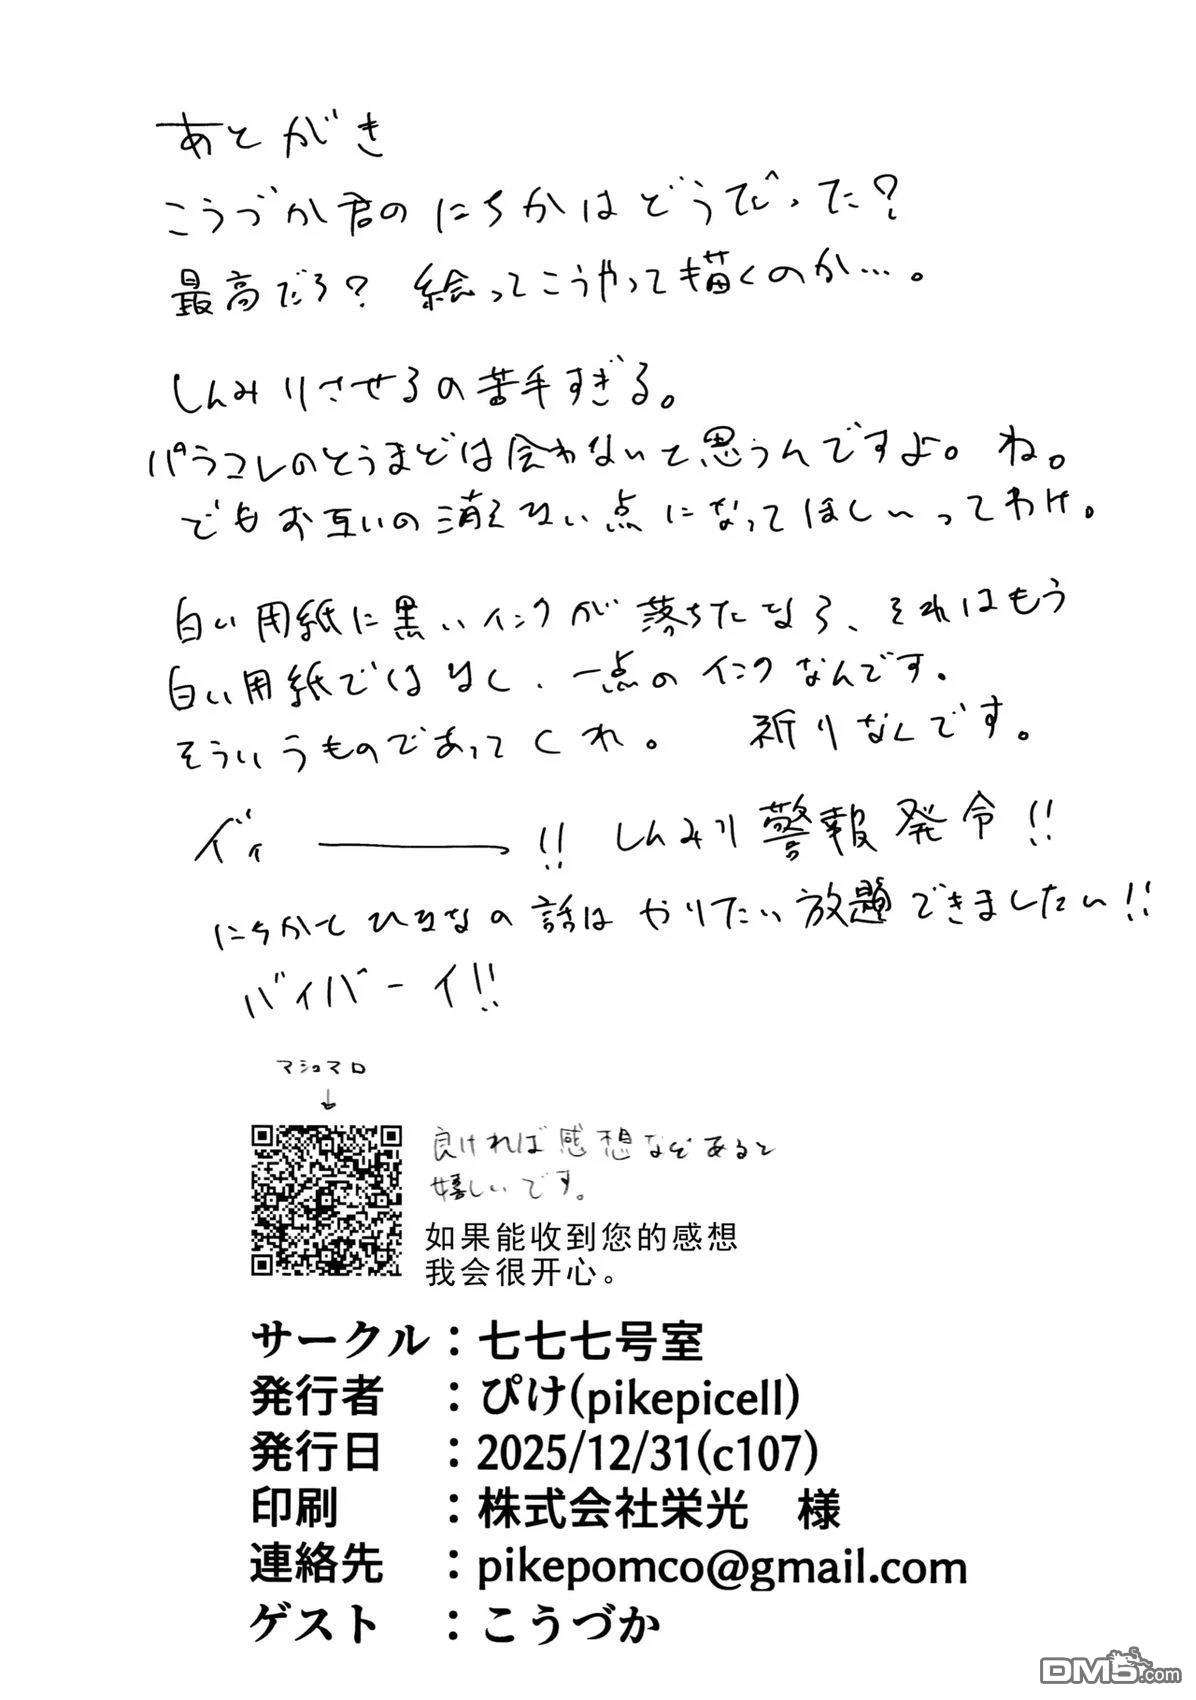 あとがき
こうづか君のにちかはどうだった?
最高だろ? 絵ってこうやって描くのか…。
しんみりさせるの苦手すぎる。
パラコレのとうまどは会わないと思うんですよ。ね。
でもお互いの消えない点になってほし〜ってわけ。
白い用紙に黒いインクが落ちたなら、それはもう
白い用紙ではなく、一点のインクなんです。
そういうものであってくれ。 祈りなんです。
イ゛ィ ―――!! しんみり警報発令!!
にちかとひななの話はやりたい放題できました〜!!
バイバーイ!!
マシュマロ
↓
良ければ感想などあると
嬉しいです。
如果能收到您的感想
我会很开心。
サークル:七七七号室
発行者 :ぴけ(pikepicell)
発行日 :2025/12/31(c107)
印刷 :株式会社栄光 様
連絡先 :pikepomco@gmail.com
ゲスト :こうづか
DM5.com